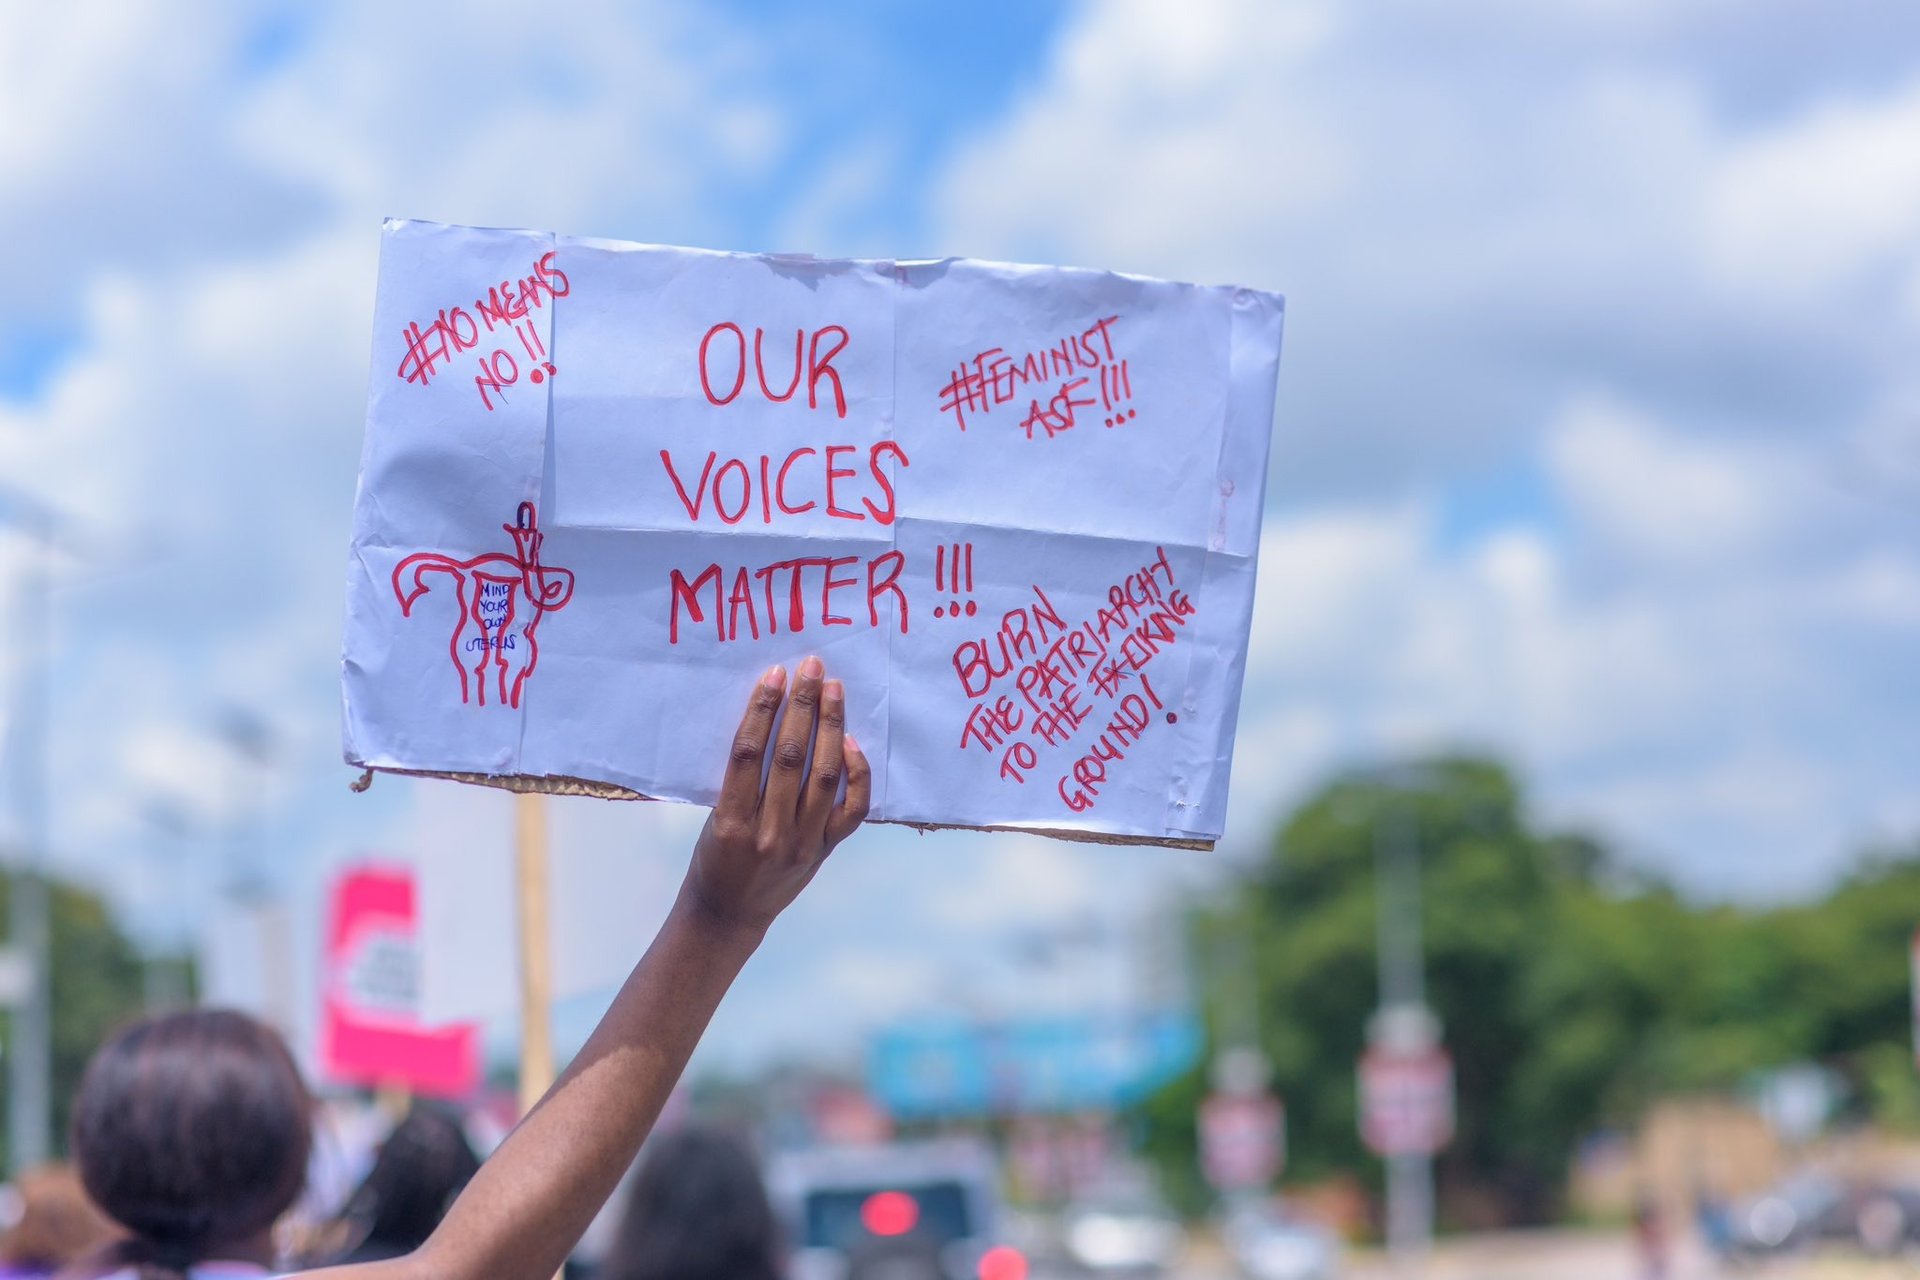 #NO MEANS
NO!!
OUR
VOICES
MATTER!!!
#FEMINIST
ASF!!!
MIND
YOUR
OWN
UTERUS
BURN
THE PATRIARCHY
TO THE FX*KING
GROUND!